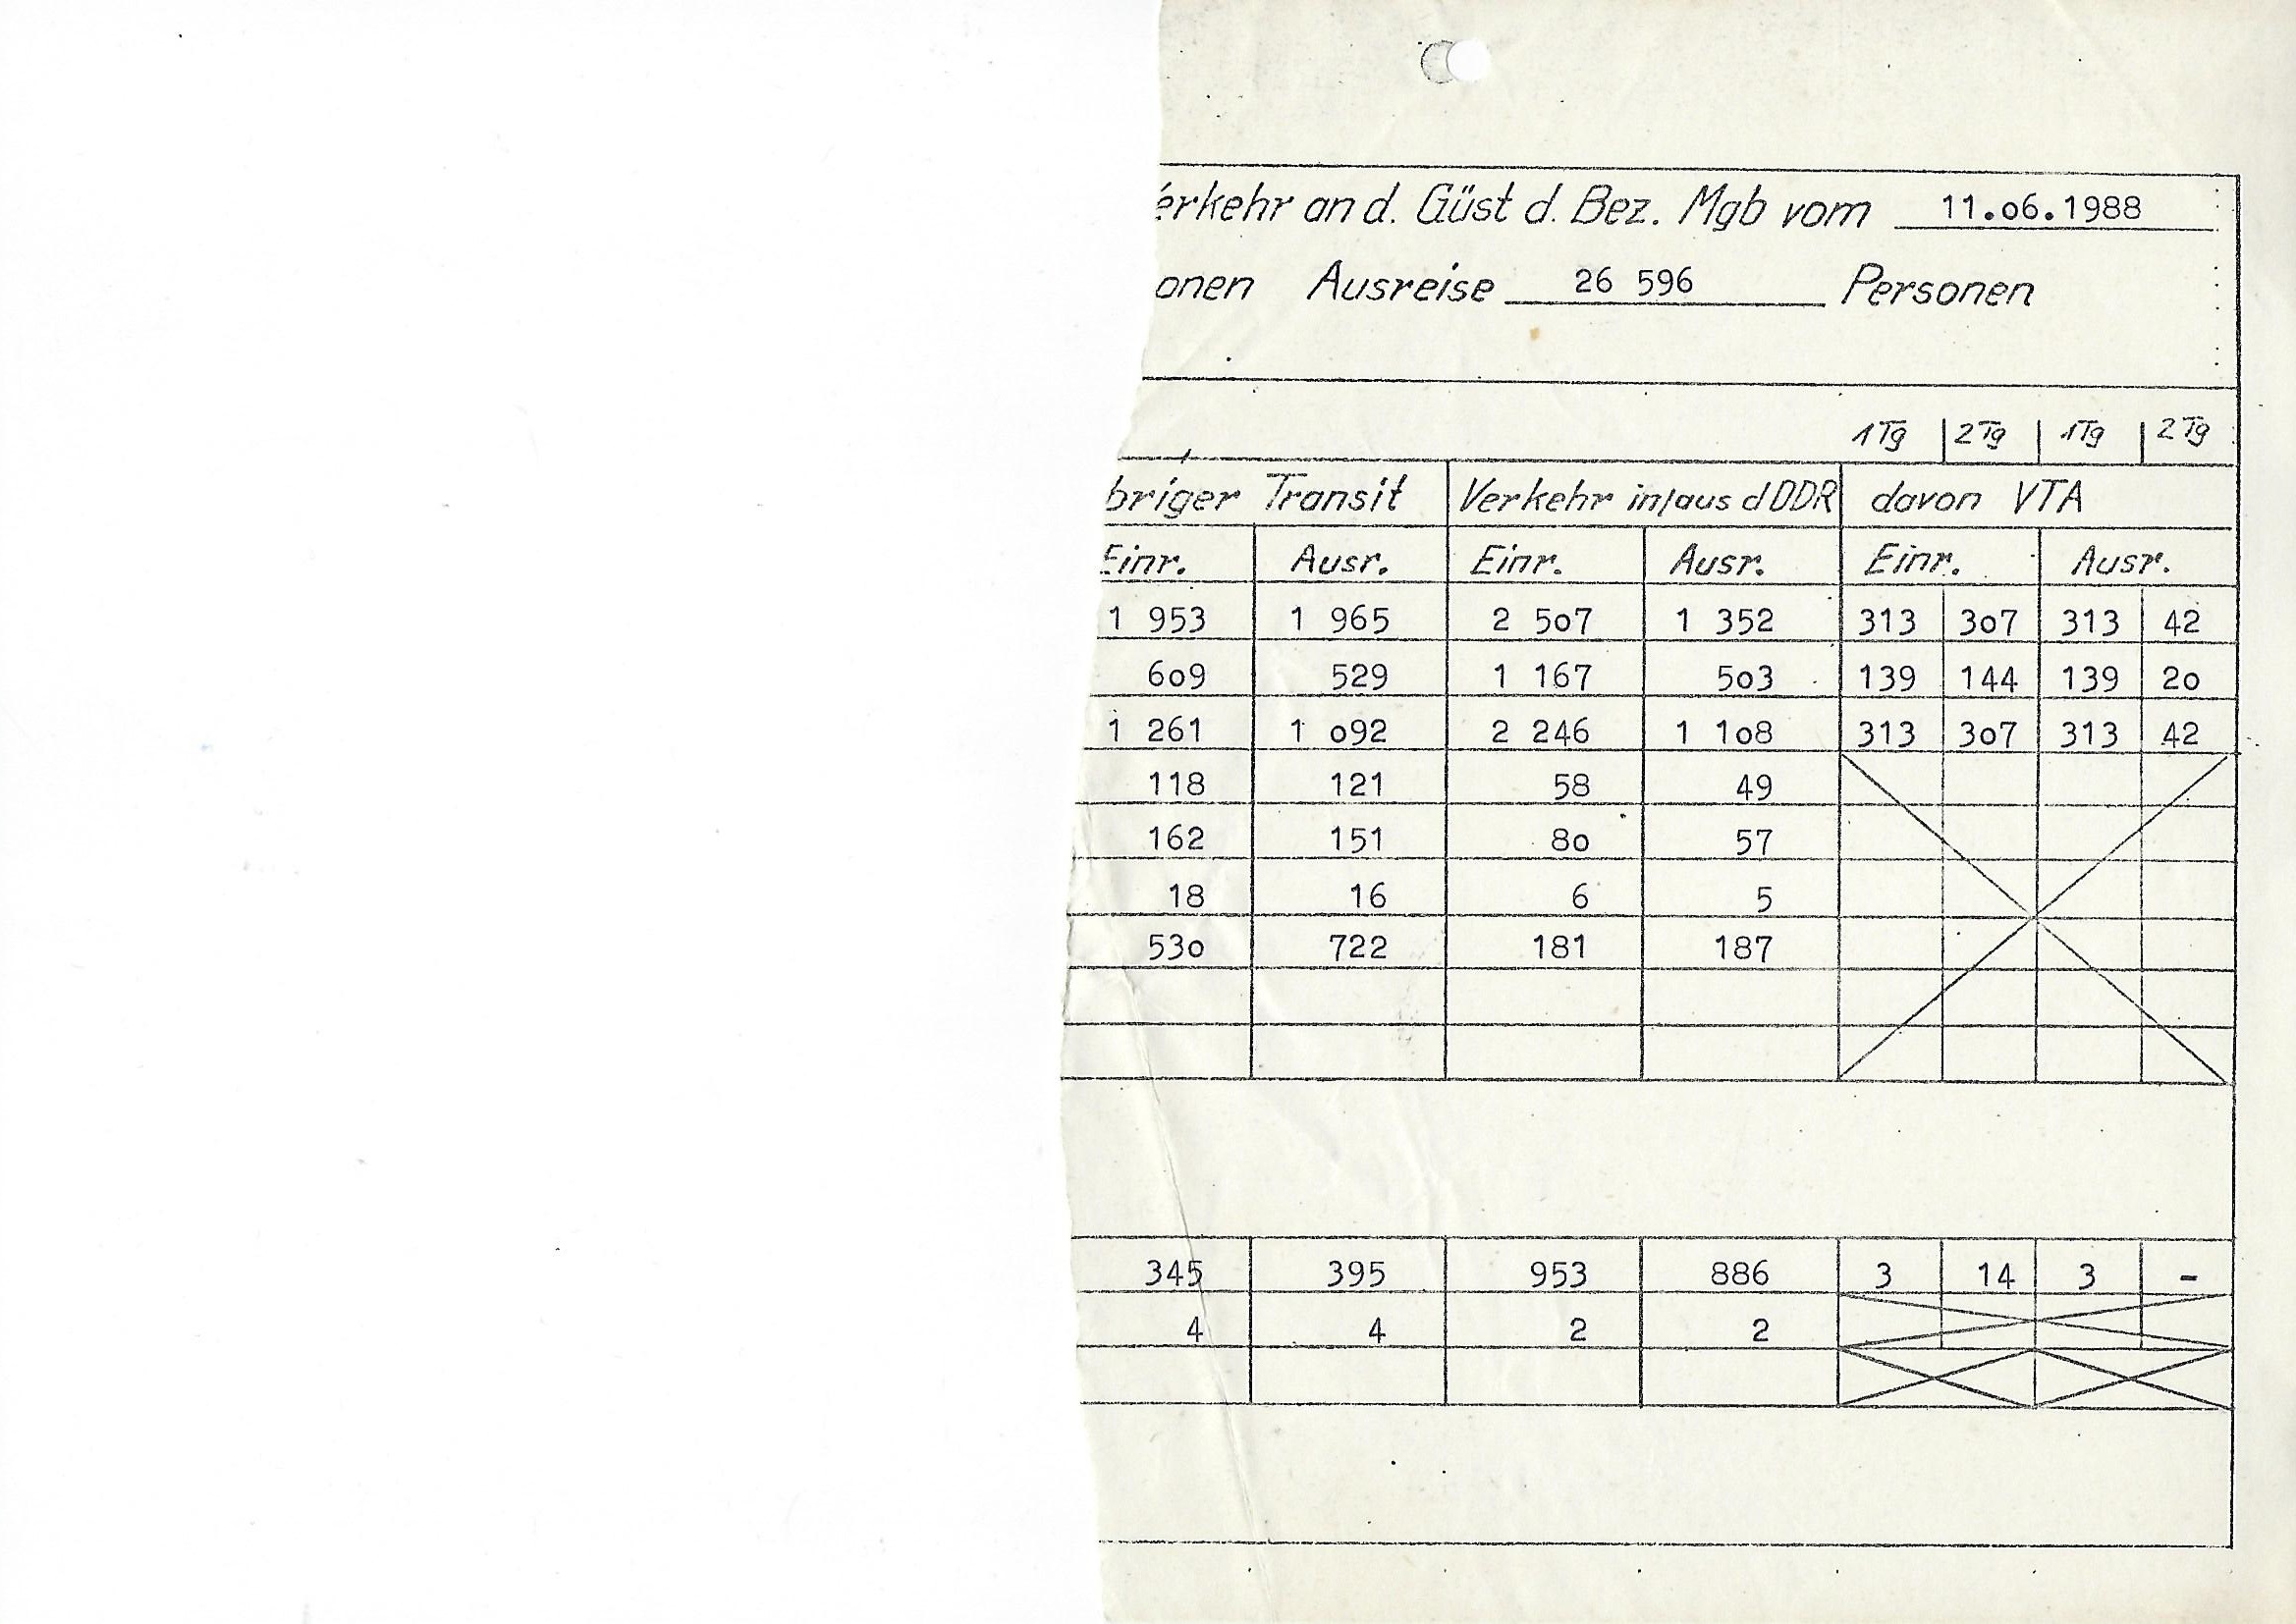 erkehr an d. Güst d. Bez. Mgb vom 11.o6.1988
onen Ausreise 26 596 Personen
1 Tg 2 Tg 1 Tg 2 Tg
briger Transit Verkehr in/aus d DDR davon VTA
Einr. Ausr. Einr. Ausr. Einr. Ausr.
1 953 1 965 2 5o7 1 352 313 3o7 313 42
6o9 529 1 167 5o3 139 144 139 2o
1 261 1 o92 2 246 1 1o8 313 3o7 313 42
118 121 58 49
162 151 8o 57
18 16 6 5
53o 722 181 187
345 395 953 886 3 14 3 -
4 4 2 2